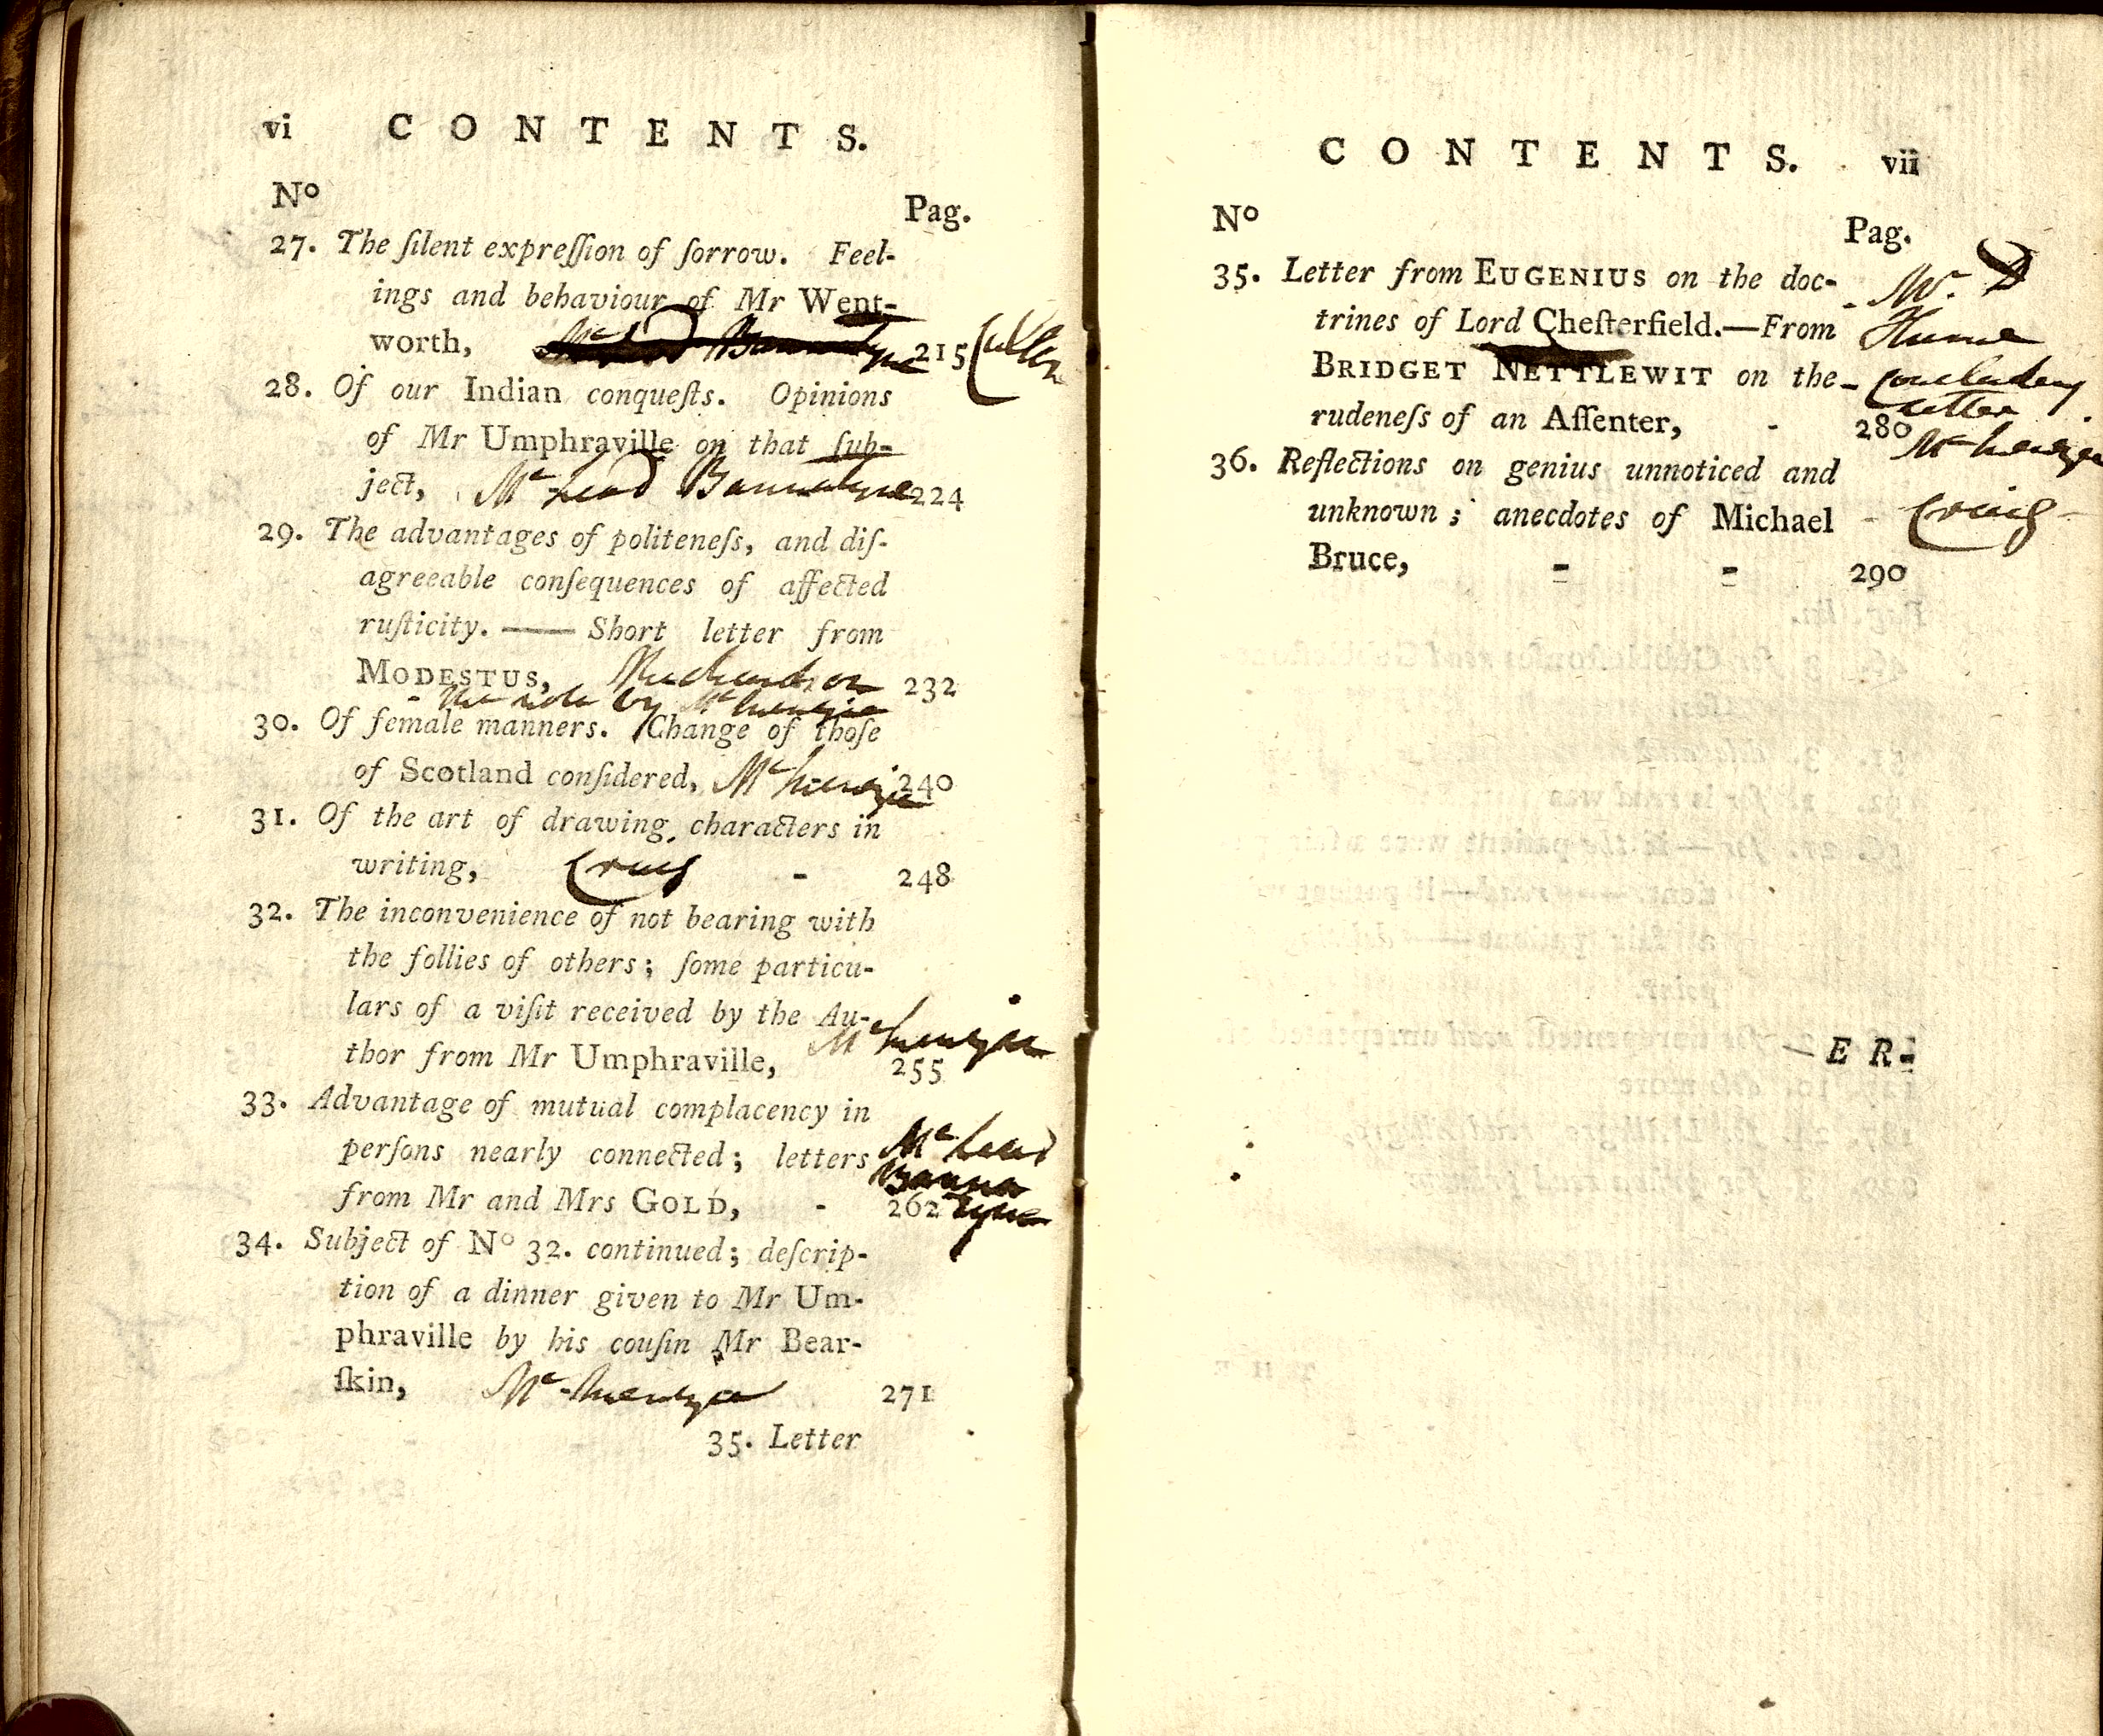 vi CONTENTS.
Nº
Pag.
27. The ſilent expreſſion of ſorrow. Feel-
ings and behaviour of Mr Went-
worth, 215 Cullen
28. Of our Indian conqueſts. Opinions
of Mr Umphraville on that ſub-
ject, McLeod Bannatyne 224
29. The advantages of politeneſs, and diſ-
agreeable conſequences of affected
ruſticity. — Short letter from
MODESTUS, Richardson 232
- the note by McKenzie
30. Of female manners. Change of thoſe
of Scotland conſidered, McKenzie 240
31. Of the art of drawing characters in
writing, Craig - 248
32. The inconvenience of not bearing with
the follies of others; ſome particu-
lars of a viſit received by the Au-
thor from Mr Umphraville, McKenzie 255
33. Advantage of mutual complacency in
perſons nearly connected; letters McLeod
Banna
from Mr and Mrs GOLD, - 262 tyne
34. Subject of Nº 32. continued; deſcrip-
tion of a dinner given to Mr Um-
phraville by his couſin Mr Bear-
ſkin, McKenzie 271
35. Letter
CONTENTS. vii
Nº
Pag.
35. Letter from EUGENIUS on the doc- - Mr D
trines of Lord Cheſterfield.—From Hume
BRIDGET NETTLEWIT on the - concluding
letter
rudeneſs of an Aſſenter, - 280 McKenzie
36. Reflections on genius unnoticed and
unknown; anecdotes of Michael - Craig -
Bruce, - - 290
—ER-